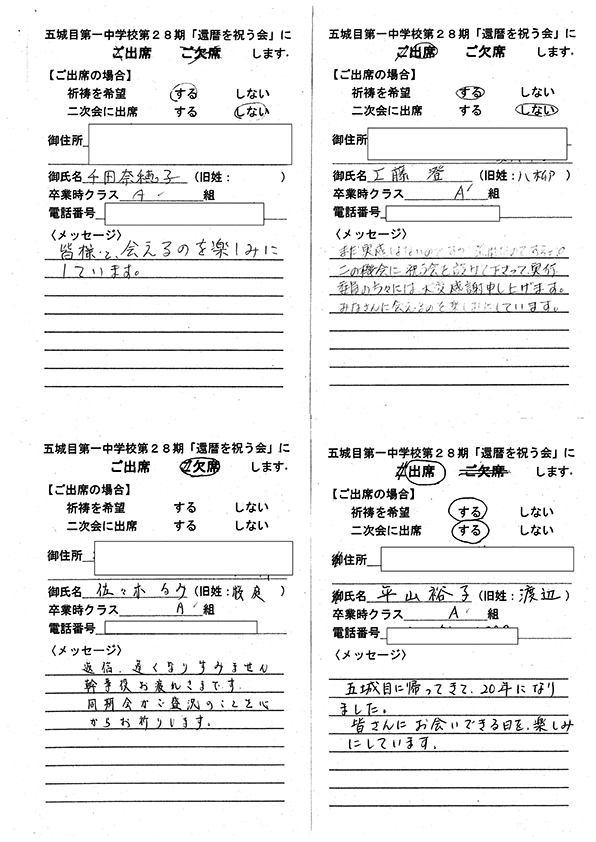 五城目第一中学校第28期「還暦を祝う会」に
ご出席 ご欠席 します.
【ご出席の場合】
祈祷を希望 する しない
二次会に出席 する しない
御住所
御氏名 千田奈穂子 (旧姓: )
卒業時クラス A 組
電話番号
〈メッセージ〉
皆様と、会えるのを楽しみに
しています。
五城目第一中学校第28期「還暦を祝う会」に
ご出席 ご欠席 します.
【ご出席の場合】
祈祷を希望 する しない
二次会に出席 する しない
御住所
御氏名 工藤 澄 (旧姓:八柳)
卒業時クラス A 組
電話番号
〈メッセージ〉
まだ実感はないのですが
この機会に祝う会を設けて下さって、実行
委員の方々には大変感謝申し上げます。
みなさんに会えるのを楽しみにしています。
五城目第一中学校第28期「還暦を祝う会」に
ご出席 ご欠席 します.
【ご出席の場合】
祈祷を希望 する しない
二次会に出席 する しない
御住所
御氏名 佐々木 (旧姓: )
卒業時クラス A 組
電話番号
〈メッセージ〉
返信、遅くなりすみません
幹事役お疲れさまです.
同期会がご盛況のことを心
からお祈りします。
五城目第一中学校第28期「還暦を祝う会」に
ご出席 ご欠席 します.
【ご出席の場合】
祈祷を希望 する しない
二次会に出席 する しない
御住所
御氏名 平山裕子 (旧姓:渡辺)
卒業時クラス A 組
電話番号
〈メッセージ〉
五城目に帰ってきて、20年になり
ました。
皆さんにお会いできる日を、楽しみ
にしています.